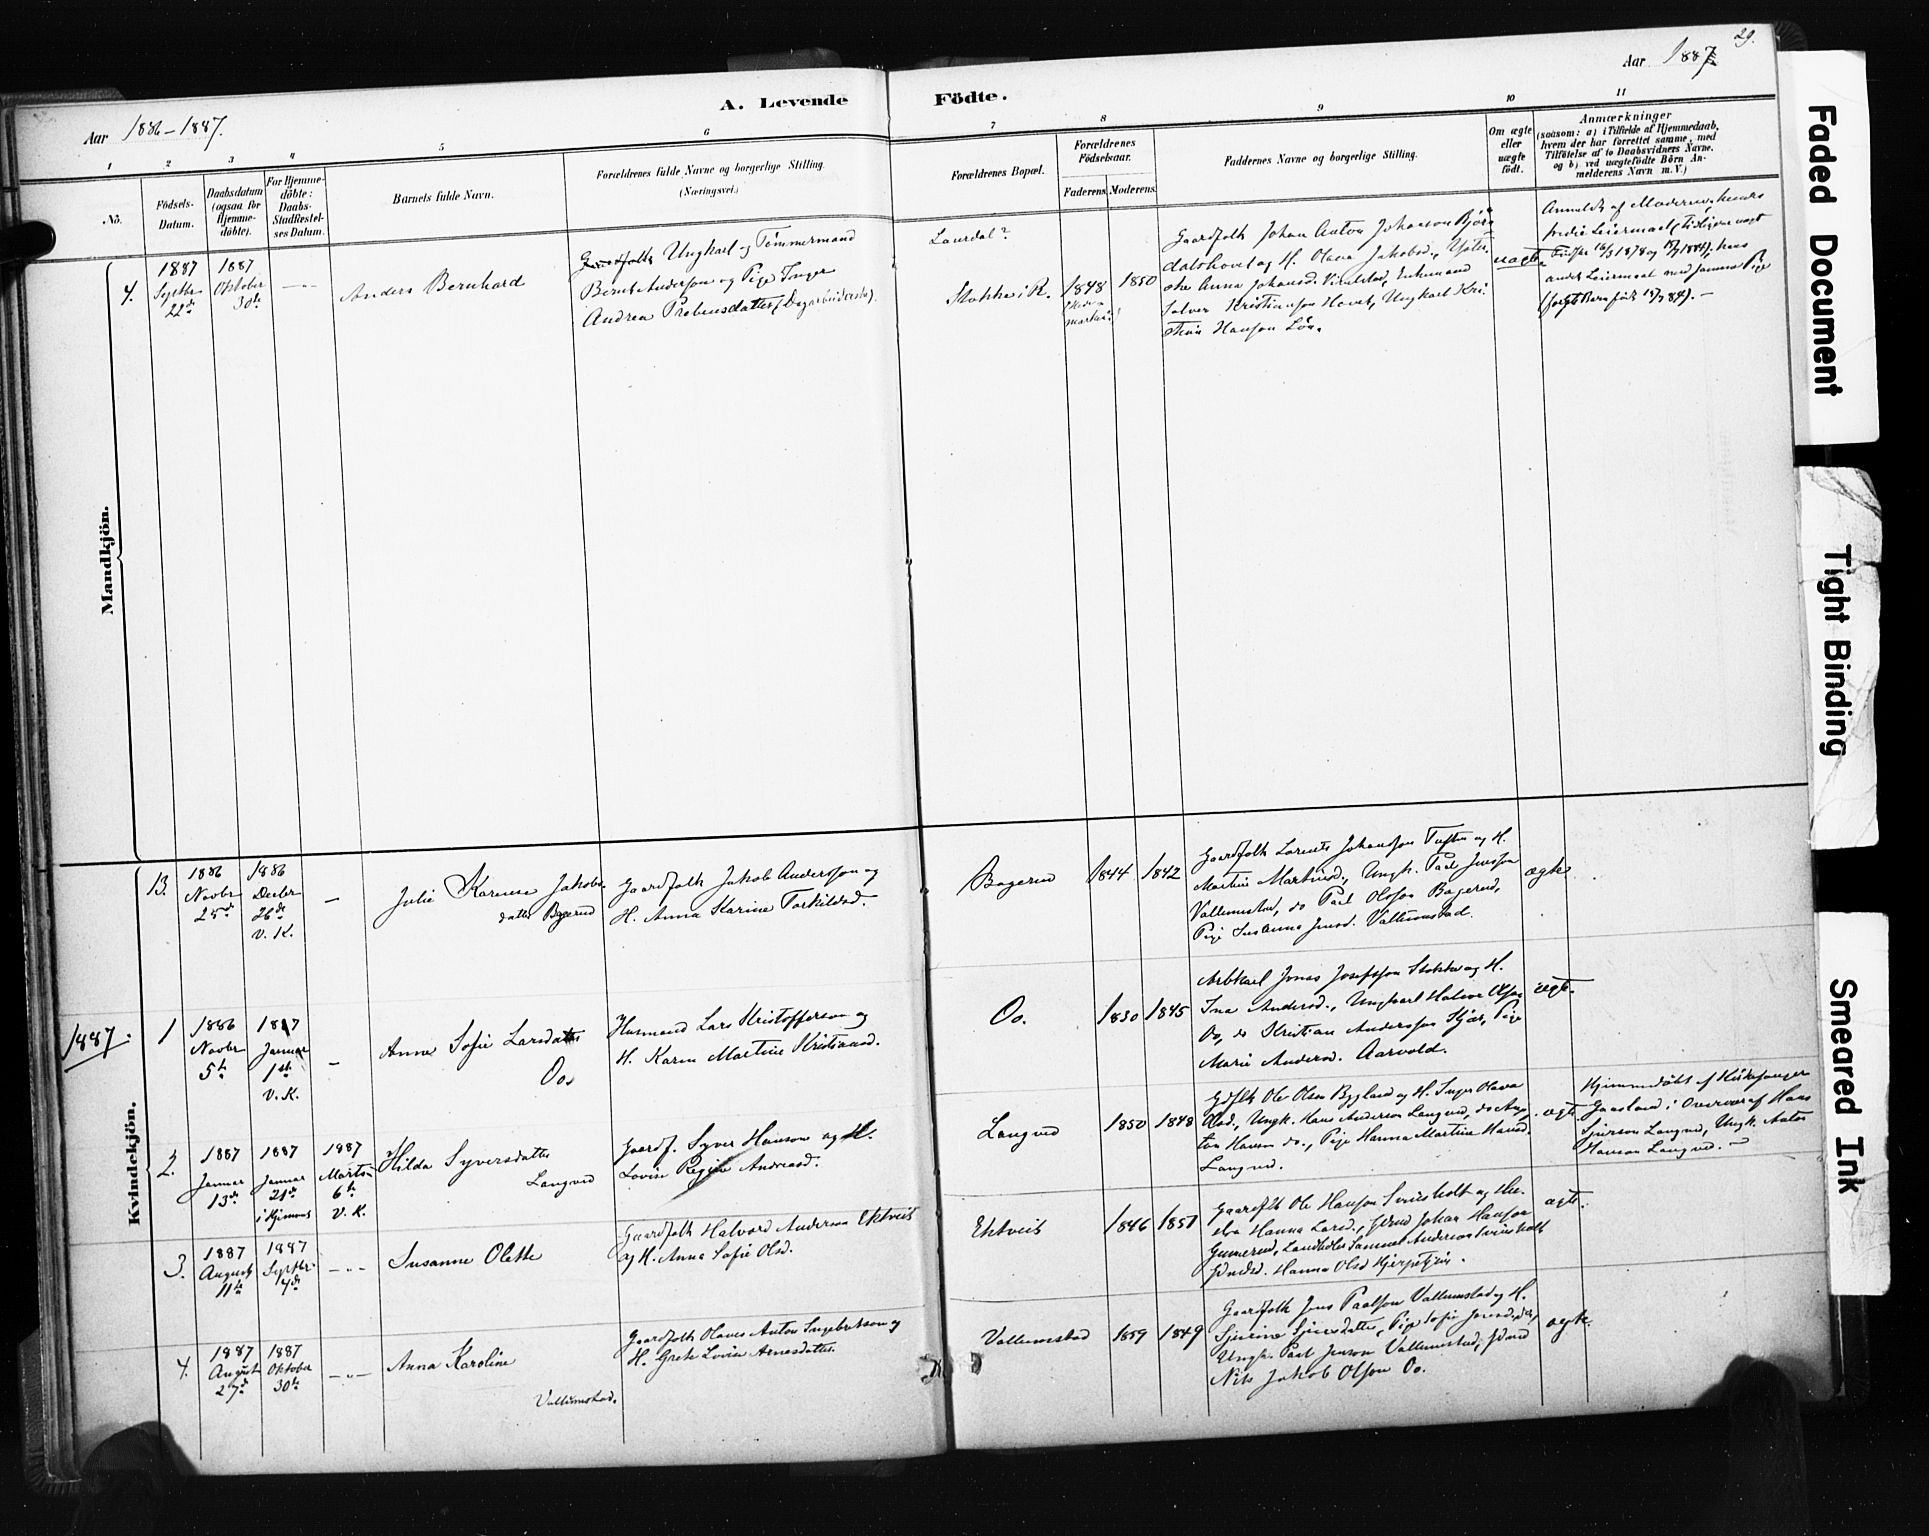 29.
Aar 1887
A. Levende Födte.
Aar 1886-1887.
1 2 3 4 5 6 7 8 9 10 11
No.
Födsels-
Datum.
Daabsdatum
(ogsaa for
Hjemme-
döbte).
For Hjemme-
döbte:
Daabs-
Stadfæstel-
ses Datum.
Barnets fulde Navn.
Forældrenes fulde Navne og borgerlige Stilling.
(Næringsvei.)
Forældrenes Bopæl.
Forældrenes
Födselsaar.
Faderens. Moderens.
Faddernes Navne og borgerlige Stilling.
Om ægte
eller
uægte
födt.
Anmærkninger
(saasom: a) i Tilfælde af Hjemmedaab,
hvem der har forrettet samme, med
Tilföielse af to Daabsvidners Navne,
og b) ved uægtefödte Börn An-
melderens Navn m. V.)
Mandkjön.
4.
1887
Septbr
22de
1887
Oktober
30te
Anders Bernhard
Gaardfolk Ungkarl og Tømmermand
Bernt Anderson og Pige Inger
Andrea Prebensdatter (Dagarbeiderske).
Laurdal?
Stokke i R.
1848
1850
Gaardfolk Johan Anton Johanson Bjørn
dalshovet og H. Olava Jakobsd.,
Anna Johansd. Enkemand
Solver Kristianson Hovet, Ungkarl Kri
stian Hanson Löv.
uægte
Anmeldt af Moderen, hendes
tredie Leiermaal
andet Leiermaal med samme Pige
Kvindekjön.
13.
1886
Novbr
25de
1886
Decbr
26de
V. K.
Julie Karense Jakobs-
datter Bagerud
Gaardfolk Jakob Andersson og
H. Anna Karine Torkildsd.
Bagerud
1844 1842
Gaardfolk Lorents Johansson Tufte og H.
Martine Martinsd., Ungk. Paal Jensson
Vallumstad, do Paal Olsson Bagerud,
Pige Susanna Jensd. Vallumstad.
ægte
1887.
1
1886
Novbr
5te
1887
Januar
1ste
V. K.
Anne Sofie Larsdatter
Oo.
Husmand Lars Kristofferson og
H. Karen Martine Kristiansd.
Oo.
1830 1845
Arbkarl Jonas Josefsson Stokke og H.
Ina Andersd., Ungkarl Halvor Olsson
Oo, do Kristian Andersson Pige
Marie Andersd. Aarvold.
ægte.
2.
1887
Januar
13de
1887
Januar
21de
i Hjemmet
1887
Marts
6te
V. K.
Hilda Syversdatter
Langrød
Gaardf. Syver Hanson og H.
Lovise Regine Andreasd.
Langrød
1850 1848
Gdflk Ole Olsen Bygland og H. Inger Olava
Olsd., Ungk. Hans Anderson Langrød, do An
ton Hanson do., Pige Hanna Martine Hansd.
Langrød.
ægte
Hjemmedöbt af Kirkesanger
Gaasland i Overvær af Hans
Langrød, Ungk. Anton
Hanson Langrød.
3.
1887
August
11te
1887
Septbr
4de
Susanne Olette
Gaardfolk Halvord Anderson Ektveit
og H. Anna Sofie Olsd.
Ektveit
1846 1857
Gaardflk Ole Hansson Sveinsholt og Hu-
stru Hanna Larsd., Johan Hansson
Gunnerød, Samuel Anderson Sveinsholt
Hanna Olsd
ægte.
4.
1887
August
27de
1887
Oktober
30te
Anna Karoline
Vallumstad.
Gaardfolk Olaves Anton Ingebretson og
H. Grete Lovise Arnesdatter.
Vallumstad
1859 1849
Gaardfolk Jens Paalson Vallumstad og H.
Pige Sofie
Ungk. Paal Jenson Vallumstad,
Nils Jakob Olsson Oo.
ægte.
Faded Document
Tight Binding
Smeared Ink